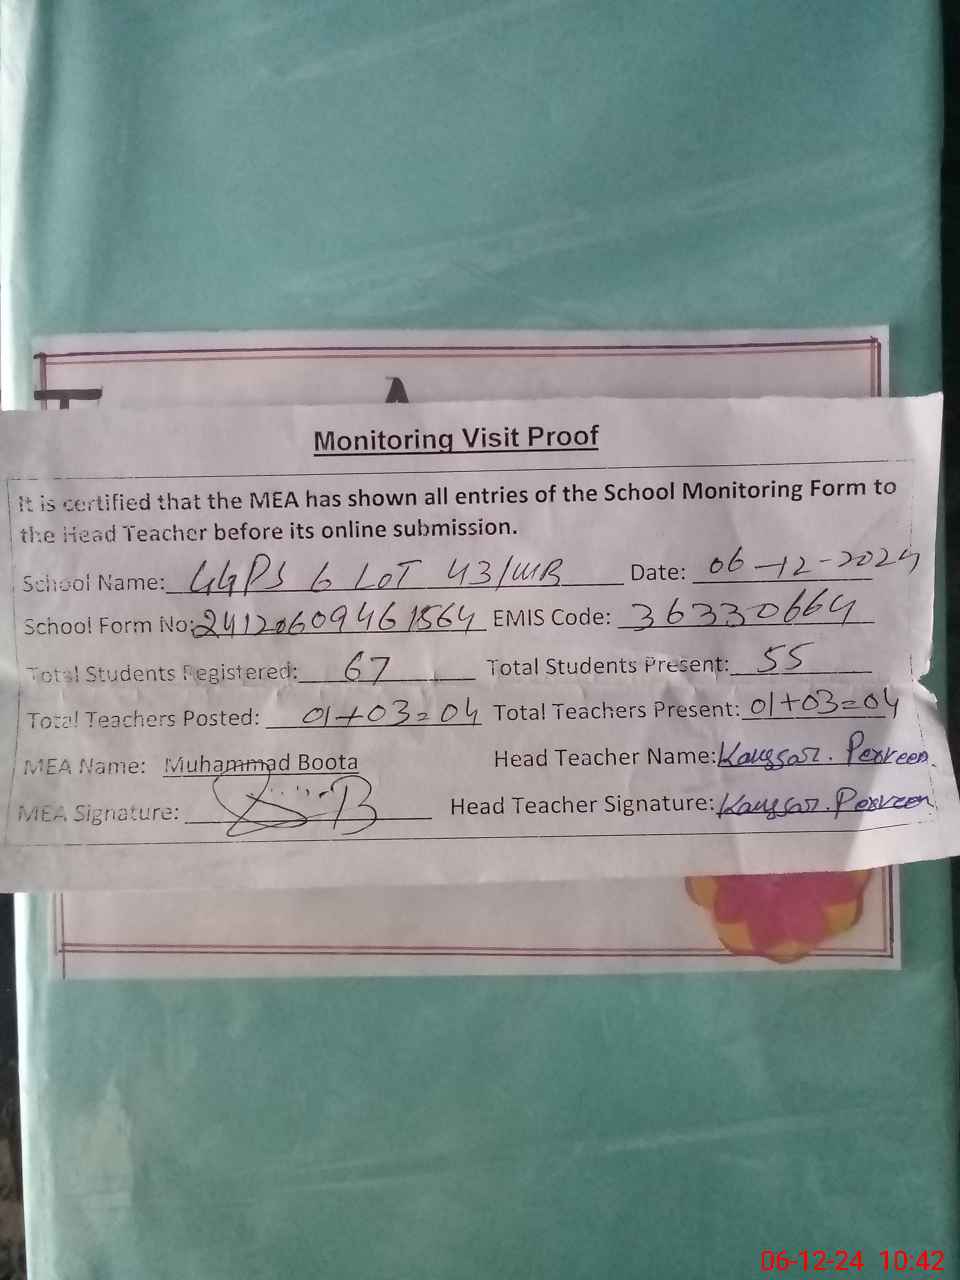 T A
Monitoring Visit Proof
It is certified that the MEA has shown all entries of the School Monitoring Form to
the Head Teacher before its online submission.
School Name: GGPS 6 LOT 43/WB Date: 06-12-2024
School Form No: 241206094461564 EMIS Code: 36330664
Total Students Registered: 67 Total Students Present: 55
Total Teachers Posted: 01+03=04 Total Teachers Present: 01+03=04
MEA Name: Muhammad Boota Head Teacher Name: Kaussar. Perveen
MEA Signature: Head Teacher Signature: Kaussar. Perveen
06-12-24 10:42